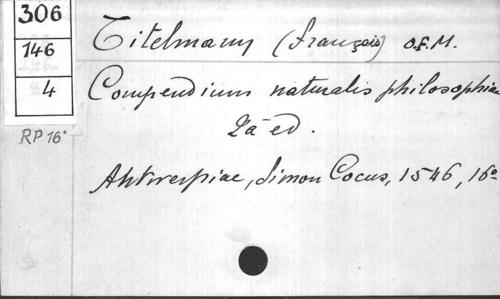 306
146
4
RP 16°
Titelmann (François) o.f.M.
Compendium naturalis philosophiae
2a ed.
Antwerpiae, Simon Cocus, 1546, 16°